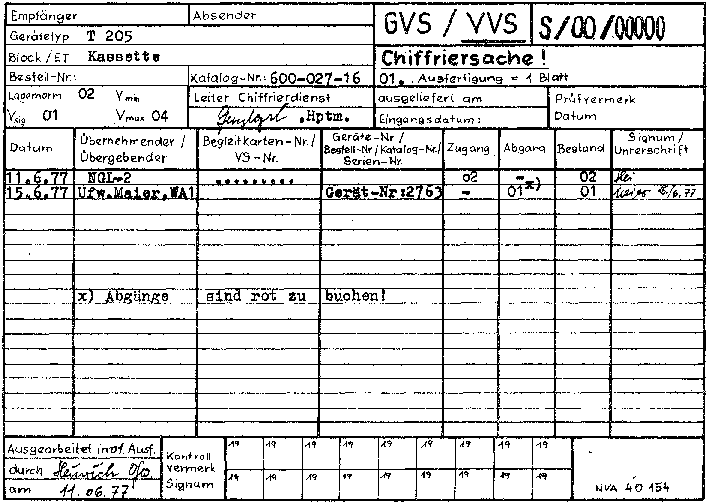 Empfänger Absender GVS / VVS S/00/00000
Gerätetyp T 205
Block/ET Kassette Chiffriersache!
Bestell-Nr: Katalog-Nr: 600-027-16 01. Ausfertigung = 1 Blatt
Lagernorm 02 Vmin Leiter Chiffrierdienst ausgeliefert am Prüfvermerk
Vsig 01 Vmax 04 .Hptm. Eingangsdatum: Datum
Datum Übernehmender / Übergebender Begleitkarten-Nr/ VS-Nr. Geräte-Nr/ Bestell-Nr/Katalog-Nr/ Serien-Nr. Zugang Abgang Bestand Signum/ Unterschrift
11.6.77 NGL-2 ......... 02 - 02 Hei
15.6.77 Ufw.Maier,WA1 Gerät-Nr:2763 - 01x) 01 Maier 15/6.77
x) Abgänge sind rot zu buchen!
Ausgearbeitet in 01 Ausf. Kontroll 19 19 19 19 19 19 19 19 19
durch Heinrich Ofw. vermerk
am 11.06.77 Signum 19 19 19 19 19 19 19 19 19 NVA 40 154